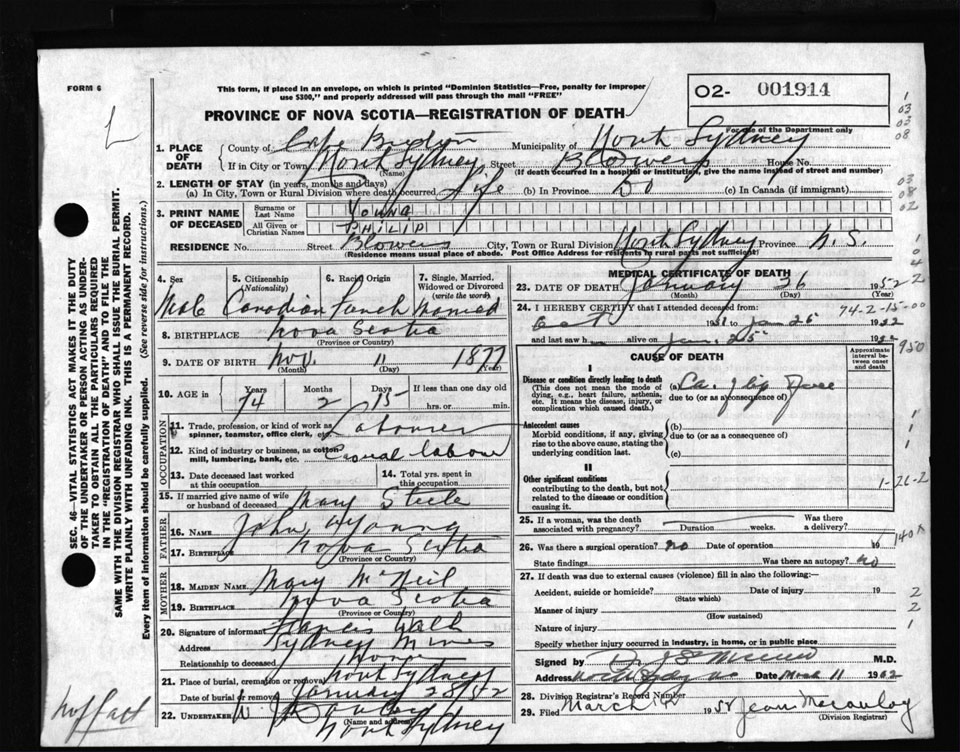 FORM 6
This form, if placed in an envelope, on which is printed "Dominion Statistics—Free, penalty for improper
use $300," and properly addressed will pass through the mail "FREE"
02- 001914
For use of the Department only
PROVINCE OF NOVA SCOTIA—REGISTRATION OF DEATH
1. PLACE OF DEATH County of Cape Breton Municipality of North Sydney
If in City or Town North Sydney Street Blowers House No.
(Name) (If death occurred in a hospital or institution, give the name instead of street and number)
2. LENGTH OF STAY (in years, months and days)
(a) In City, Town or Rural Division where death occurred Life (b) In Province Do (c) In Canada (if immigrant)
3. PRINT NAME OF DECEASED Surname or Last Name YOUNG
All Given or Christian Names PHILIP
RESIDENCE No. Street Blowers City, Town or Rural Division North Sydney Province N.S.
(Residence means usual place of abode. Post Office Address for residents in rural parts not sufficient)
4. Sex Male
5. Citizenship (Nationality) Canadian
6. Racial Origin French
7. Single, Married, Widowed or Divorced (write the word) Married
8. BIRTHPLACE Nova Scotia
(Province or Country)
9. DATE OF BIRTH Nov. 11 1877
(Month) (Day) (Year)
10. AGE in Years 74 Months 2 Days 15 If less than one day old
hrs. or min.
OCCUPATION
11. Trade, profession, or kind of work as spinner, teamster, office clerk, etc. Labourer
12. Kind of industry or business, as cotton mill, lumbering, bank, etc. Casual labour
13. Date deceased last worked at this occupation
14. Total yrs. spent in this occupation
15. If married give name of wife or husband of deceased Mary Steele
FATHER
16. NAME John Young
17. BIRTHPLACE Nova Scotia
(Province or Country)
MOTHER
18. MAIDEN NAME Mary McNeil
19. BIRTHPLACE Nova Scotia
(Province or Country)
20. Signature of informant Francis
Address Sydney Mines
Relationship to deceased
21. Place of burial, cremation or removal North Sydney
Date of burial or removal January 28/52
22. UNDERTAKER
(Name and address)
North Sydney
MEDICAL CERTIFICATE OF DEATH
23. DATE OF DEATH January 26 1952
(Month) (Day) (Year)
24. I HEREBY CERTIFY that I attended deceased from: 74-2-15-00
Oct 1951 to Jan 25 1952
and last saw h alive on Jan. 25 19
CAUSE OF DEATH
Approximate interval between onset and death
I
Disease or condition directly leading to death
(This does not mean the mode of dying, e.g., heart failure, asthenia, etc. It means the disease, injury, or complication which caused death.)
(a)
due to (or as a consequence of)
Antecedent causes
Morbid conditions, if any, giving rise to the above cause, stating the underlying condition last.
(b)
due to (or as a consequence of)
(c)
II
Other significant conditions
contributing to the death, but not related to the disease or condition causing it.
1-26-2
25. If a woman, was the death associated with pregnancy? Duration weeks. Was there a delivery?
26. Was there a surgical operation? no Date of operation 19
State findings Was there an autopsy? no
27. If death was due to external causes (violence) fill in also the following:—
Accident, suicide or homicide? Date of injury 19
(State which)
Manner of injury
(How sustained)
Nature of injury
Specify whether injury occurred in industry, in home, or in public place
Signed by M.D.
Address Date March 11 1952
28. Division Registrar's Record Number
29. Filed March 19 52 Jean Macaulay
(Division Registrar)
SEC. 46—VITAL STATISTICS ACT MAKES IT THE DUTY
OF THE UNDERTAKER OR PERSON ACTING AS UNDER-
TAKER TO OBTAIN ALL THE PARTICULARS REQUIRED
IN THE "REGISTRATION OF DEATH" AND TO FILE THE
SAME WITH THE DIVISION REGISTRAR WHO SHALL ISSUE THE BURIAL PERMIT.
WRITE PLAINLY WITH UNFADING INK. THIS IS A PERMANENT RECORD.
Every item of information should be carefully supplied. (See reverse side for instructions.)